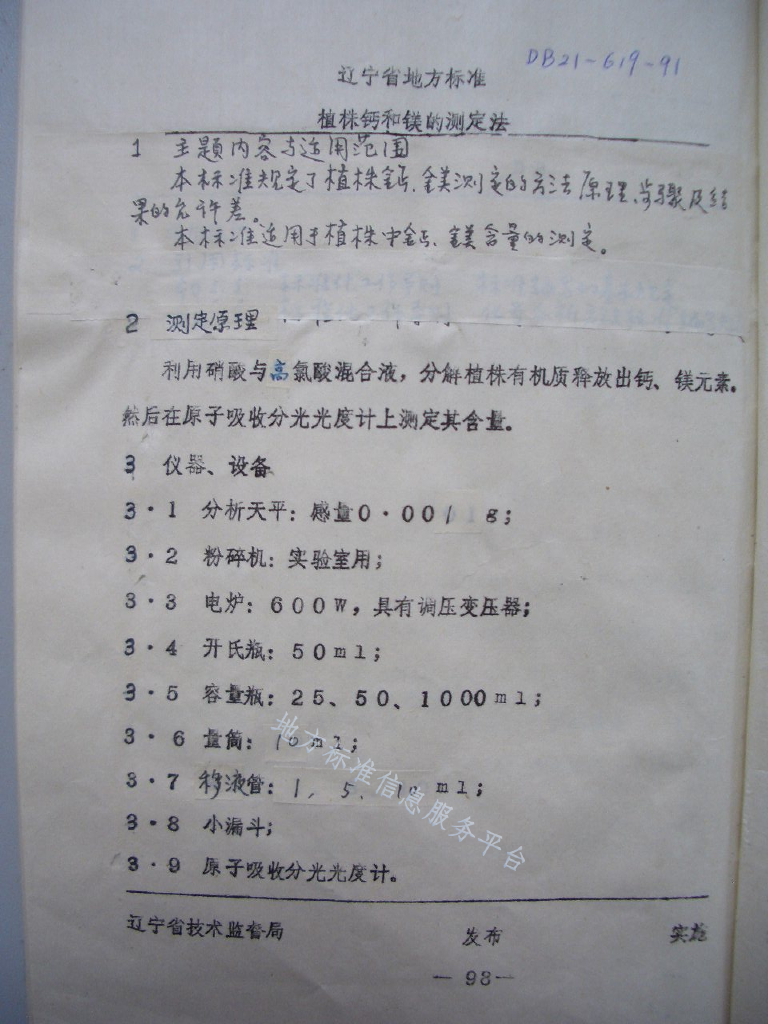 DB21-619-91
辽宁省地方标准
植株钙和镁的测定法
1 主题内容与适用范围
本标准规定了植株钙、镁测定的方法原理、步骤及结
果的允许差。
本标准适用于植株中钙、镁含量的测定。
2 测定原理
利用硝酸与高氯酸混合液，分解植株有机质释放出钙、镁元素。
然后在原子吸收分光光度计上测定其含量。
3 仪器、设备
3·1 分析天平：感量0·001g；
3·2 粉碎机：实验室用；
3·3 电炉：600W，具有调压变压器；
3·4 开氏瓶：50ml；
3·5 容量瓶：25、50、1000ml；
3·6 量筒：10ml；
3·7 移液管：1，5，10ml；
3·8 小漏斗；
3·9 原子吸收分光光度计。
地方标准信息服务平台
辽宁省技术监督局 发布 实施
— 98 —